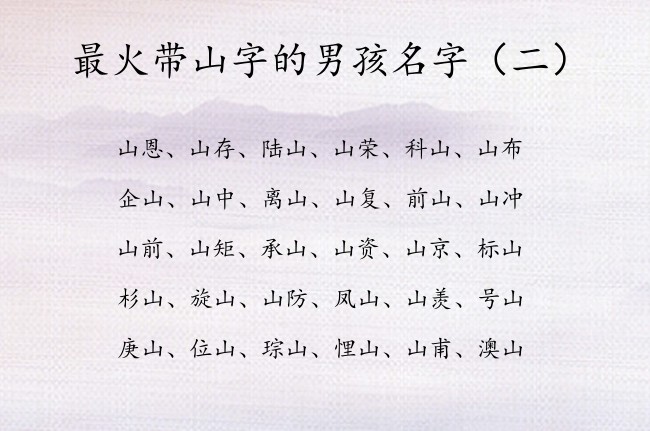 最火带山字的男孩名字（二）
山恩、山存、陆山、山荣、科山、山布
企山、山中、离山、山复、前山、山冲
山前、山矩、承山、山资、山京、标山
杉山、旋山、山防、凤山、山羡、号山
庚山、位山、琮山、悝山、山甫、澳山